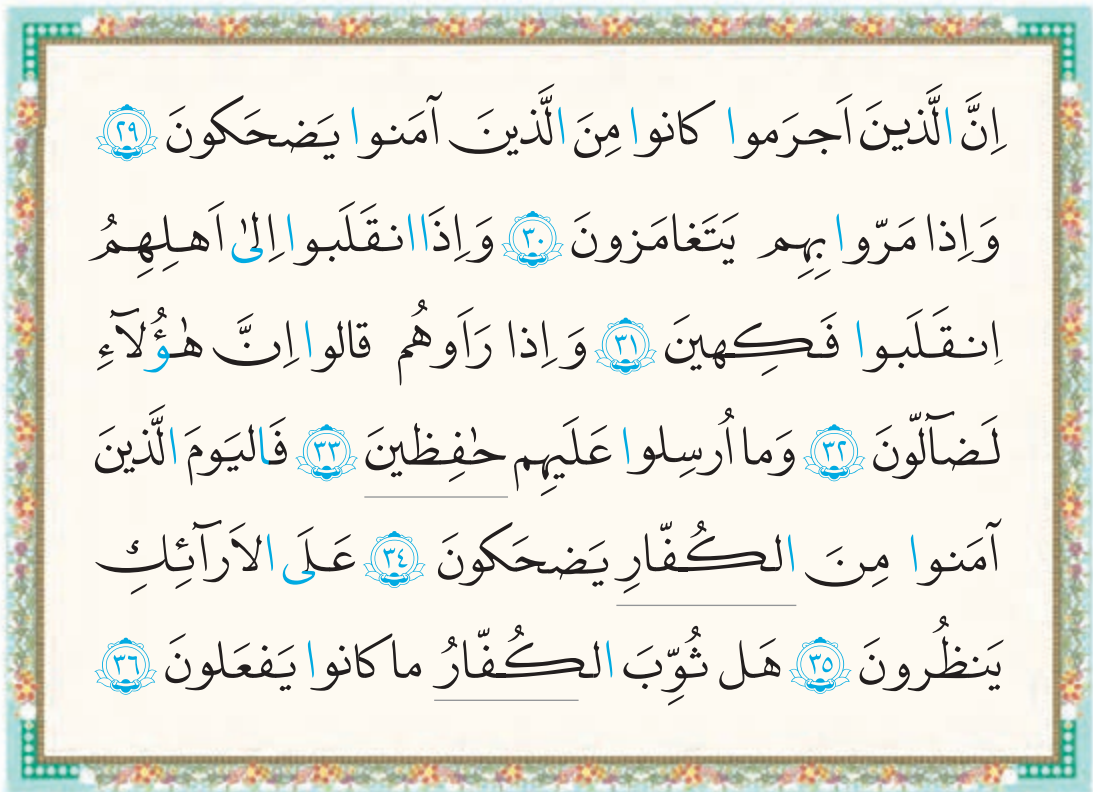 اِنَّ الَّذينَ اَجرَموا كانوا مِنَ الَّذينَ آمَنوا يَضحَكونَ ٢٩
وَ اِذا مَرّوا بِهِم يَتَغامَزونَ ٣٠ وَ اِذَا انقَلَبوا اِلىٰ اَهلِهِمُ
اِنقَلَبوا فَكِهينَ ٣١ وَ اِذا رَاَوهُم قالوا اِنَّ هٰؤُلآءِ
لَضآلّونَ ٣٢ وَما اُرسِلوا عَلَيهِم حٰفِظينَ ٣٣ فَاليَومَ الَّذينَ
آمَنوا مِنَ الكُفّارِ يَضحَكونَ ٣٤ عَلَى الاَرآئِكِ
يَنظُرونَ ٣٥ هَل ثُوِّبَ الكُفّارُ ما كانوا يَفعَلونَ ٣٦